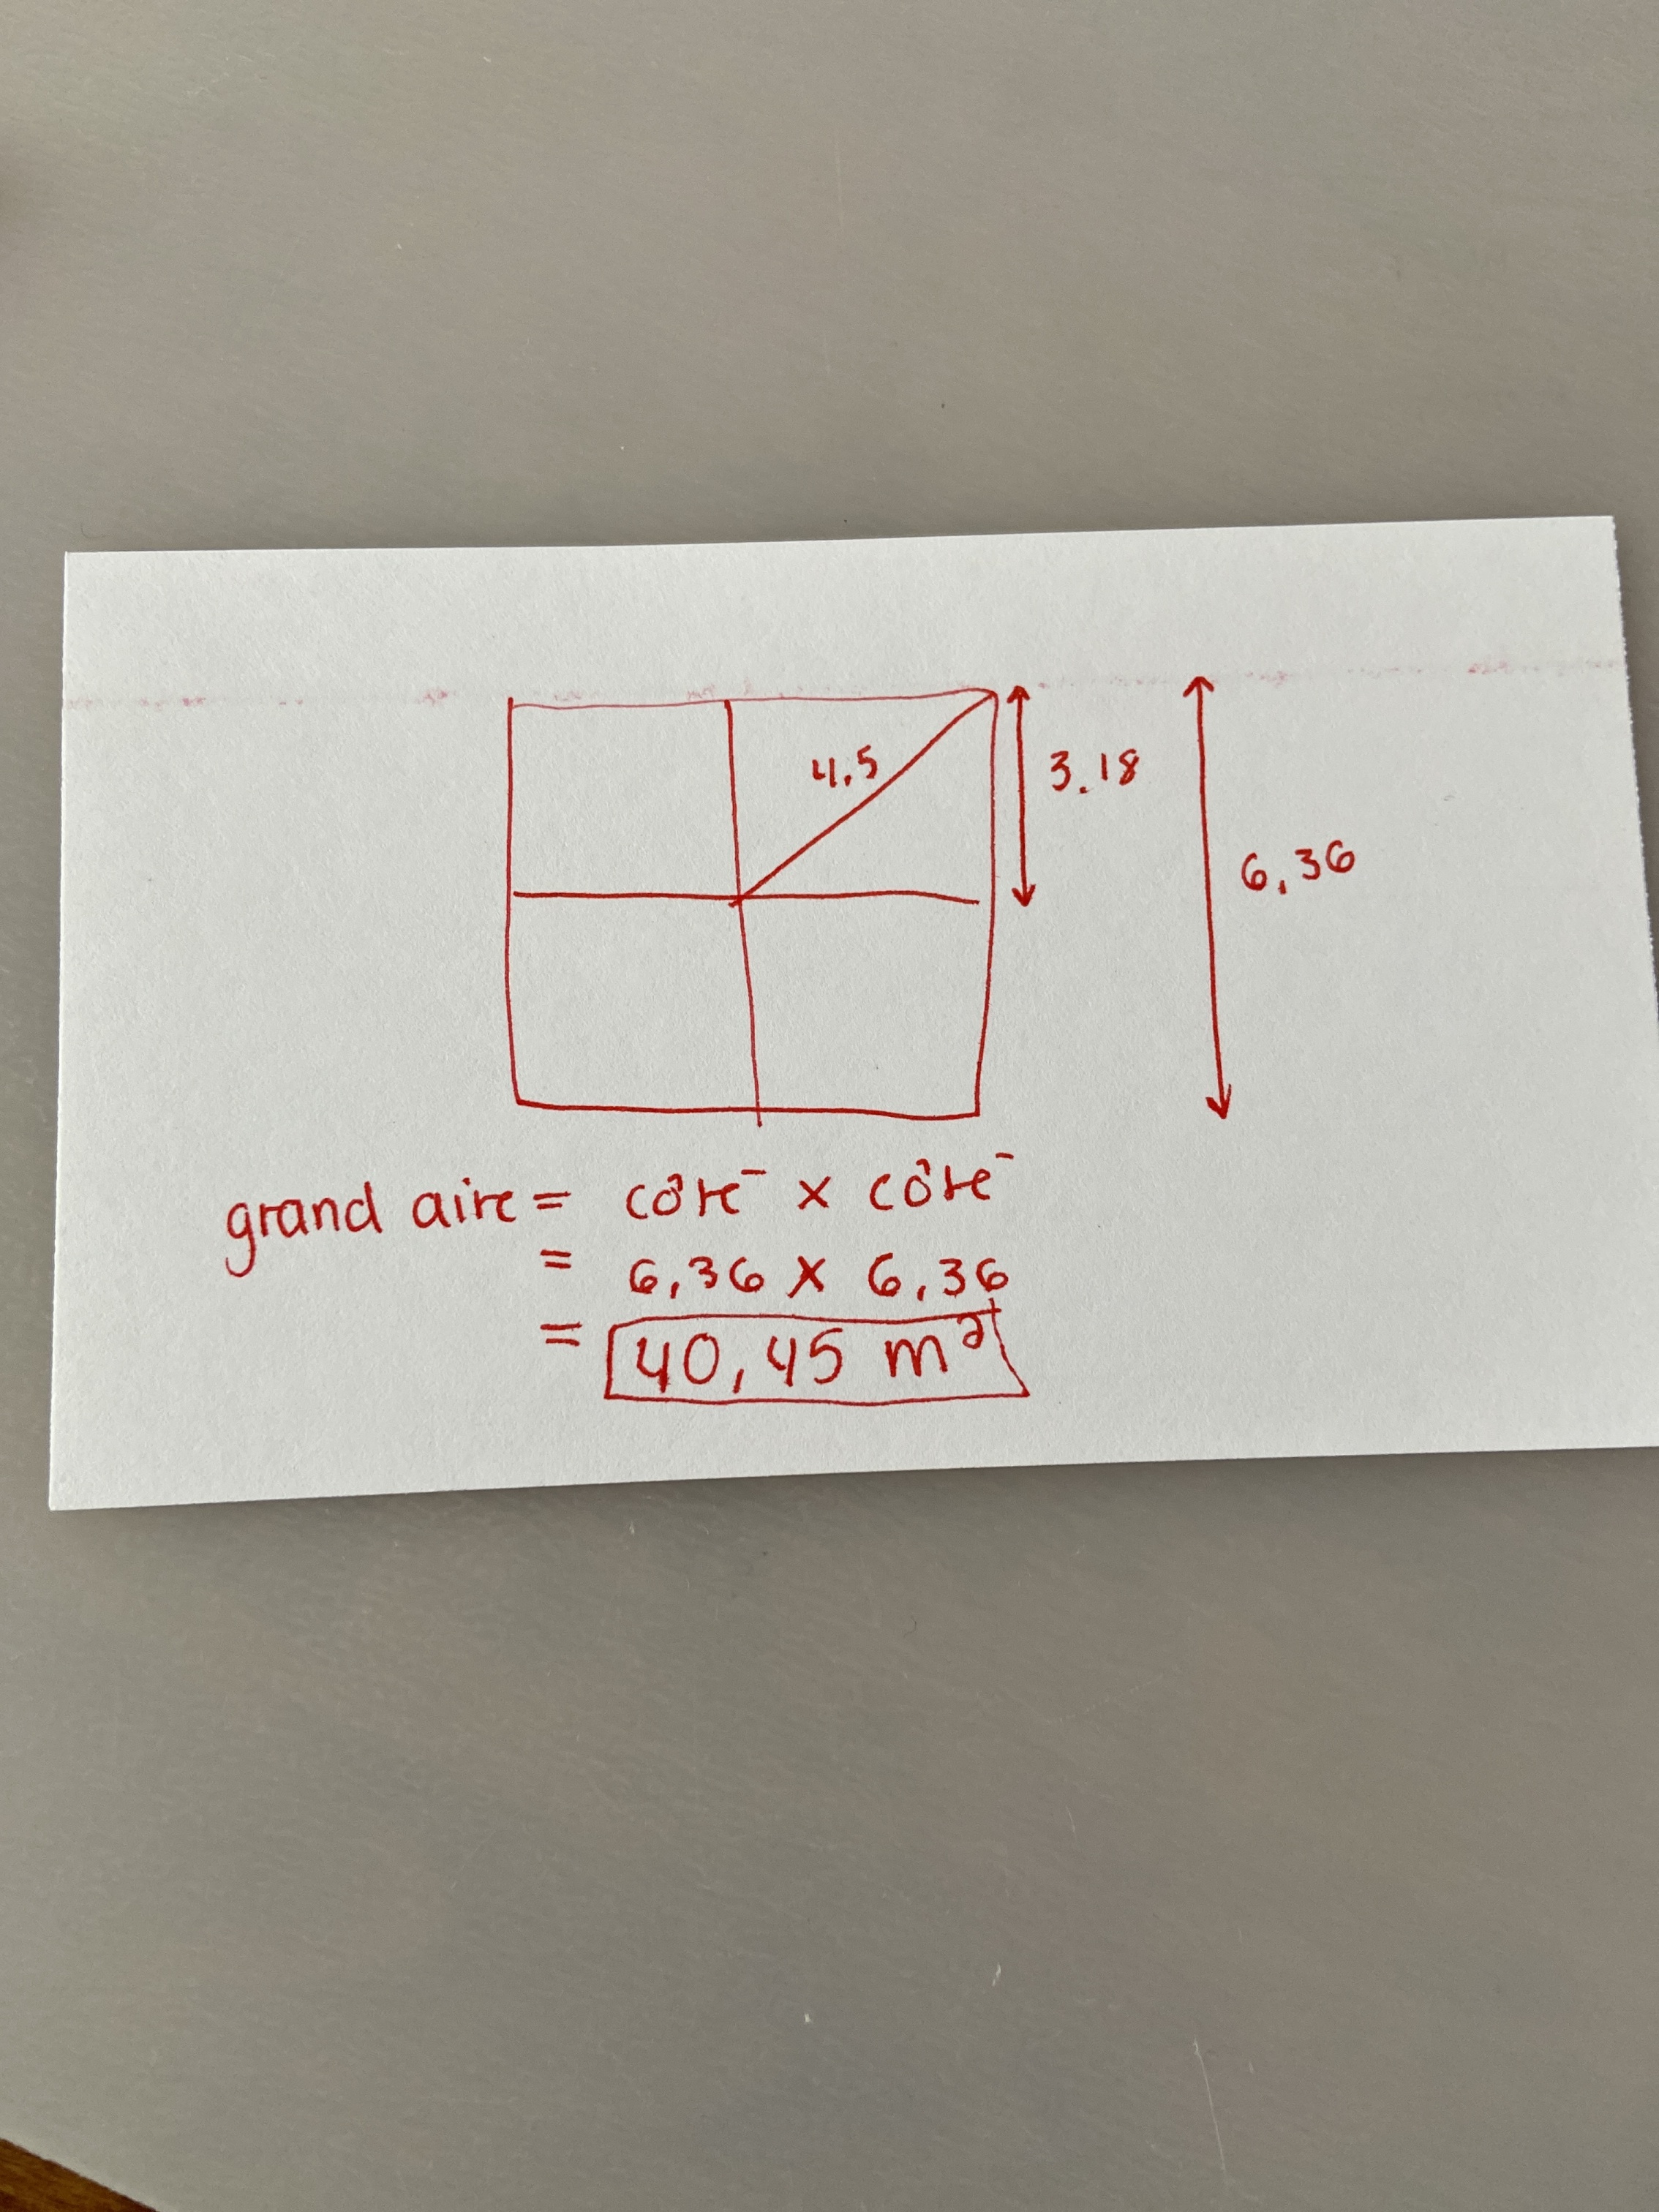 4,5
3.18
6,36
grand aire = côté x côté
= 6,36 x 6,36
= 40,45 m²